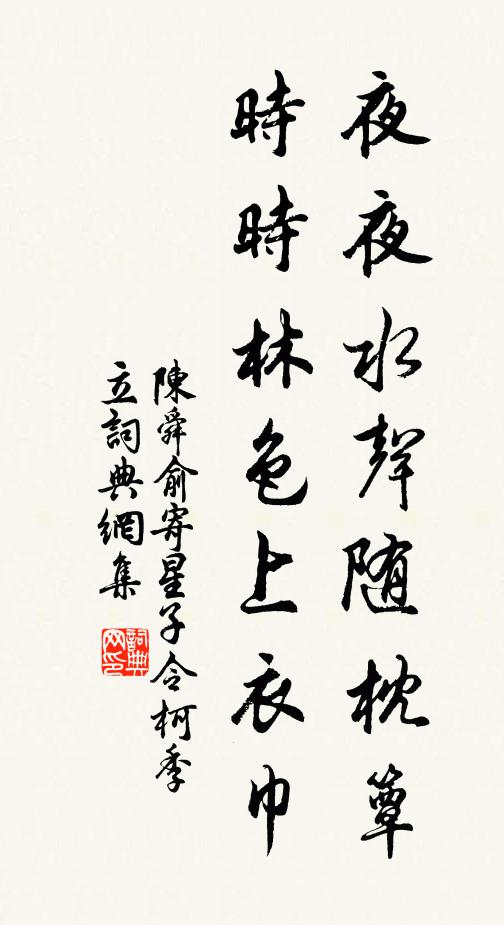 夜夜水聲随枕簟
時時林色上衣巾
陳舜俞寄星子令柯季
立詞典網集
詞典网印